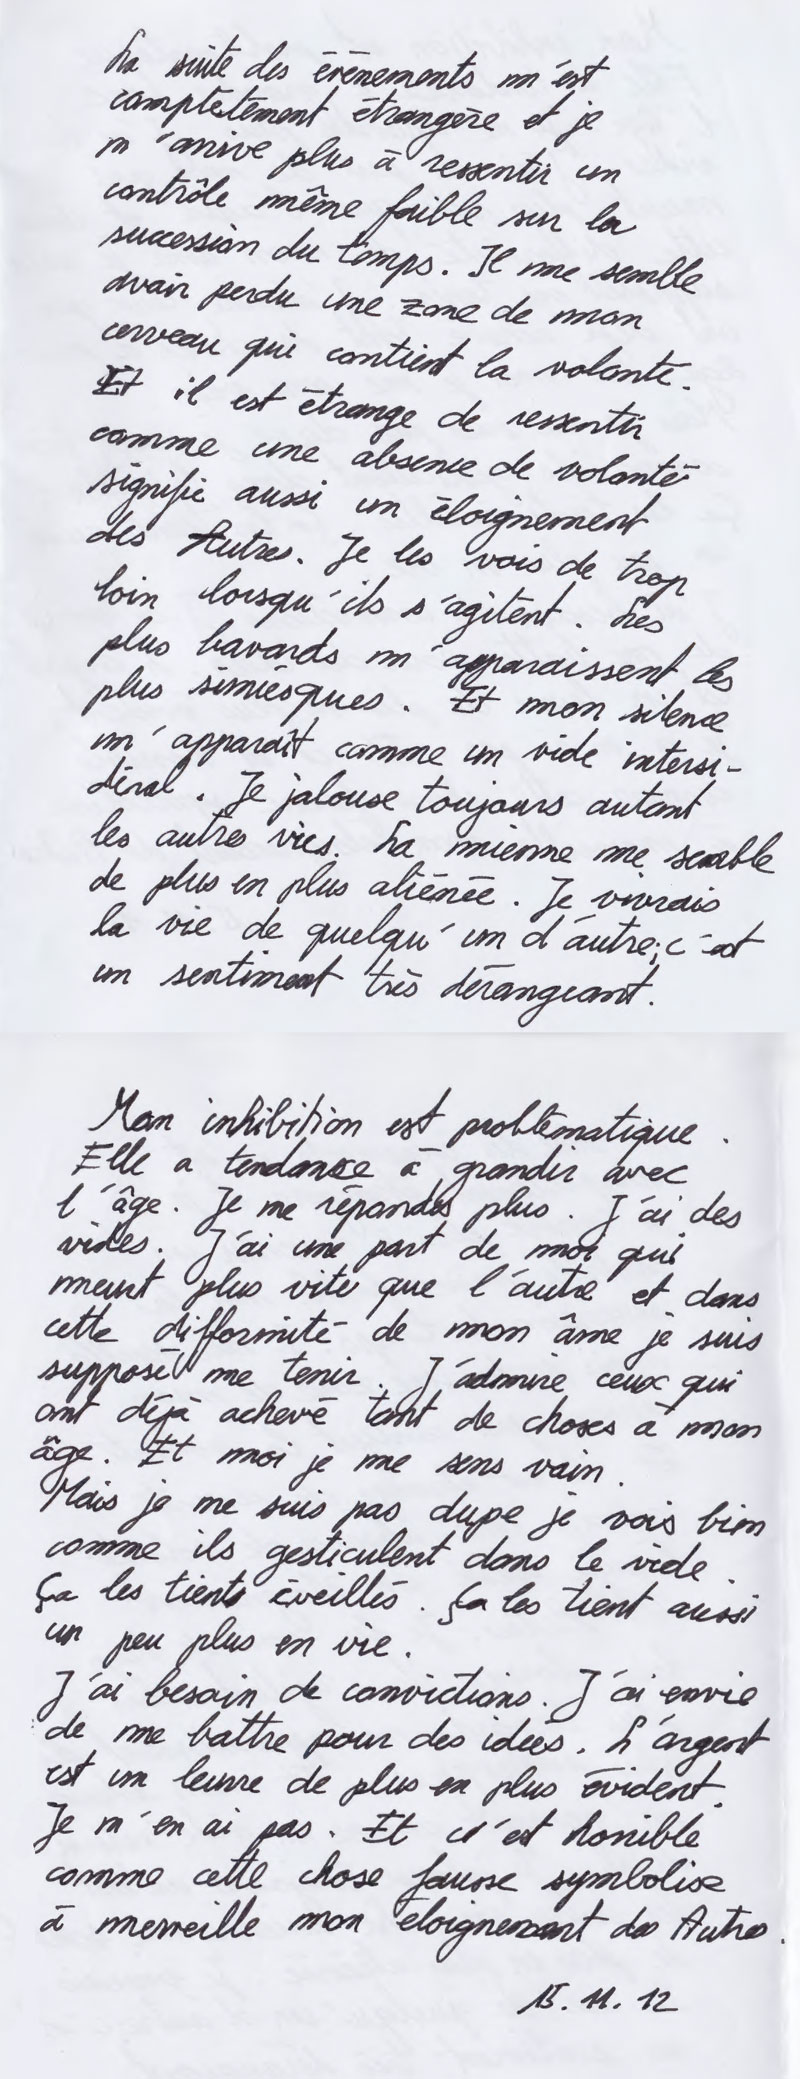 La suite des évènements m'est
complètement étrangère et je
n'arrive plus à ressentir un
contrôle même faible sur la
succession du temps. Il me semble
avoir perdu une zone de mon
cerveau qui contient la volonté.
Et il est étrange de ressentir
comme une absence de volonté
signifie aussi un éloignement
des Autres. Je les vois de trop
loin lorsqu'ils s'agitent. Les
plus bavards m'apparaissent les
plus simiesques. Et mon silence
m'apparaît comme un vide intersi-
déral. Je jalouse toujours autant
les autres vies. La mienne me semble
de plus en plus aliénée. Je vivrais
la vie de quelqu'un d'autre; c'est
un sentiment très dérangeant.
Mon inhibition est problématique.
Elle a tendance à grandir avec
l'âge. Je me répandes plus. J'ai des
vides. J'ai une part de moi qui
meurt plus vite que l'autre et dans
cette difformité de mon âme je suis
supposé me tenir. J'admire ceux qui
ont déjà achevé tant de choses à mon
âge. Et moi je me sens vain.
Mais je ne suis pas dupe je vois bien
comme ils gesticulent dans le vide.
Ça les tients éveillés. Ça les tient aussi
un peu plus en vie.
J'ai besoin de convictions. J'ai envie
de me battre pour des idées. L'argent
est un leurre de plus en plus évident.
Je n'en ai pas. Et c'est horrible
comme cette chose fausse symbolise
à merveille mon éloignement des Autres.
15.11.12